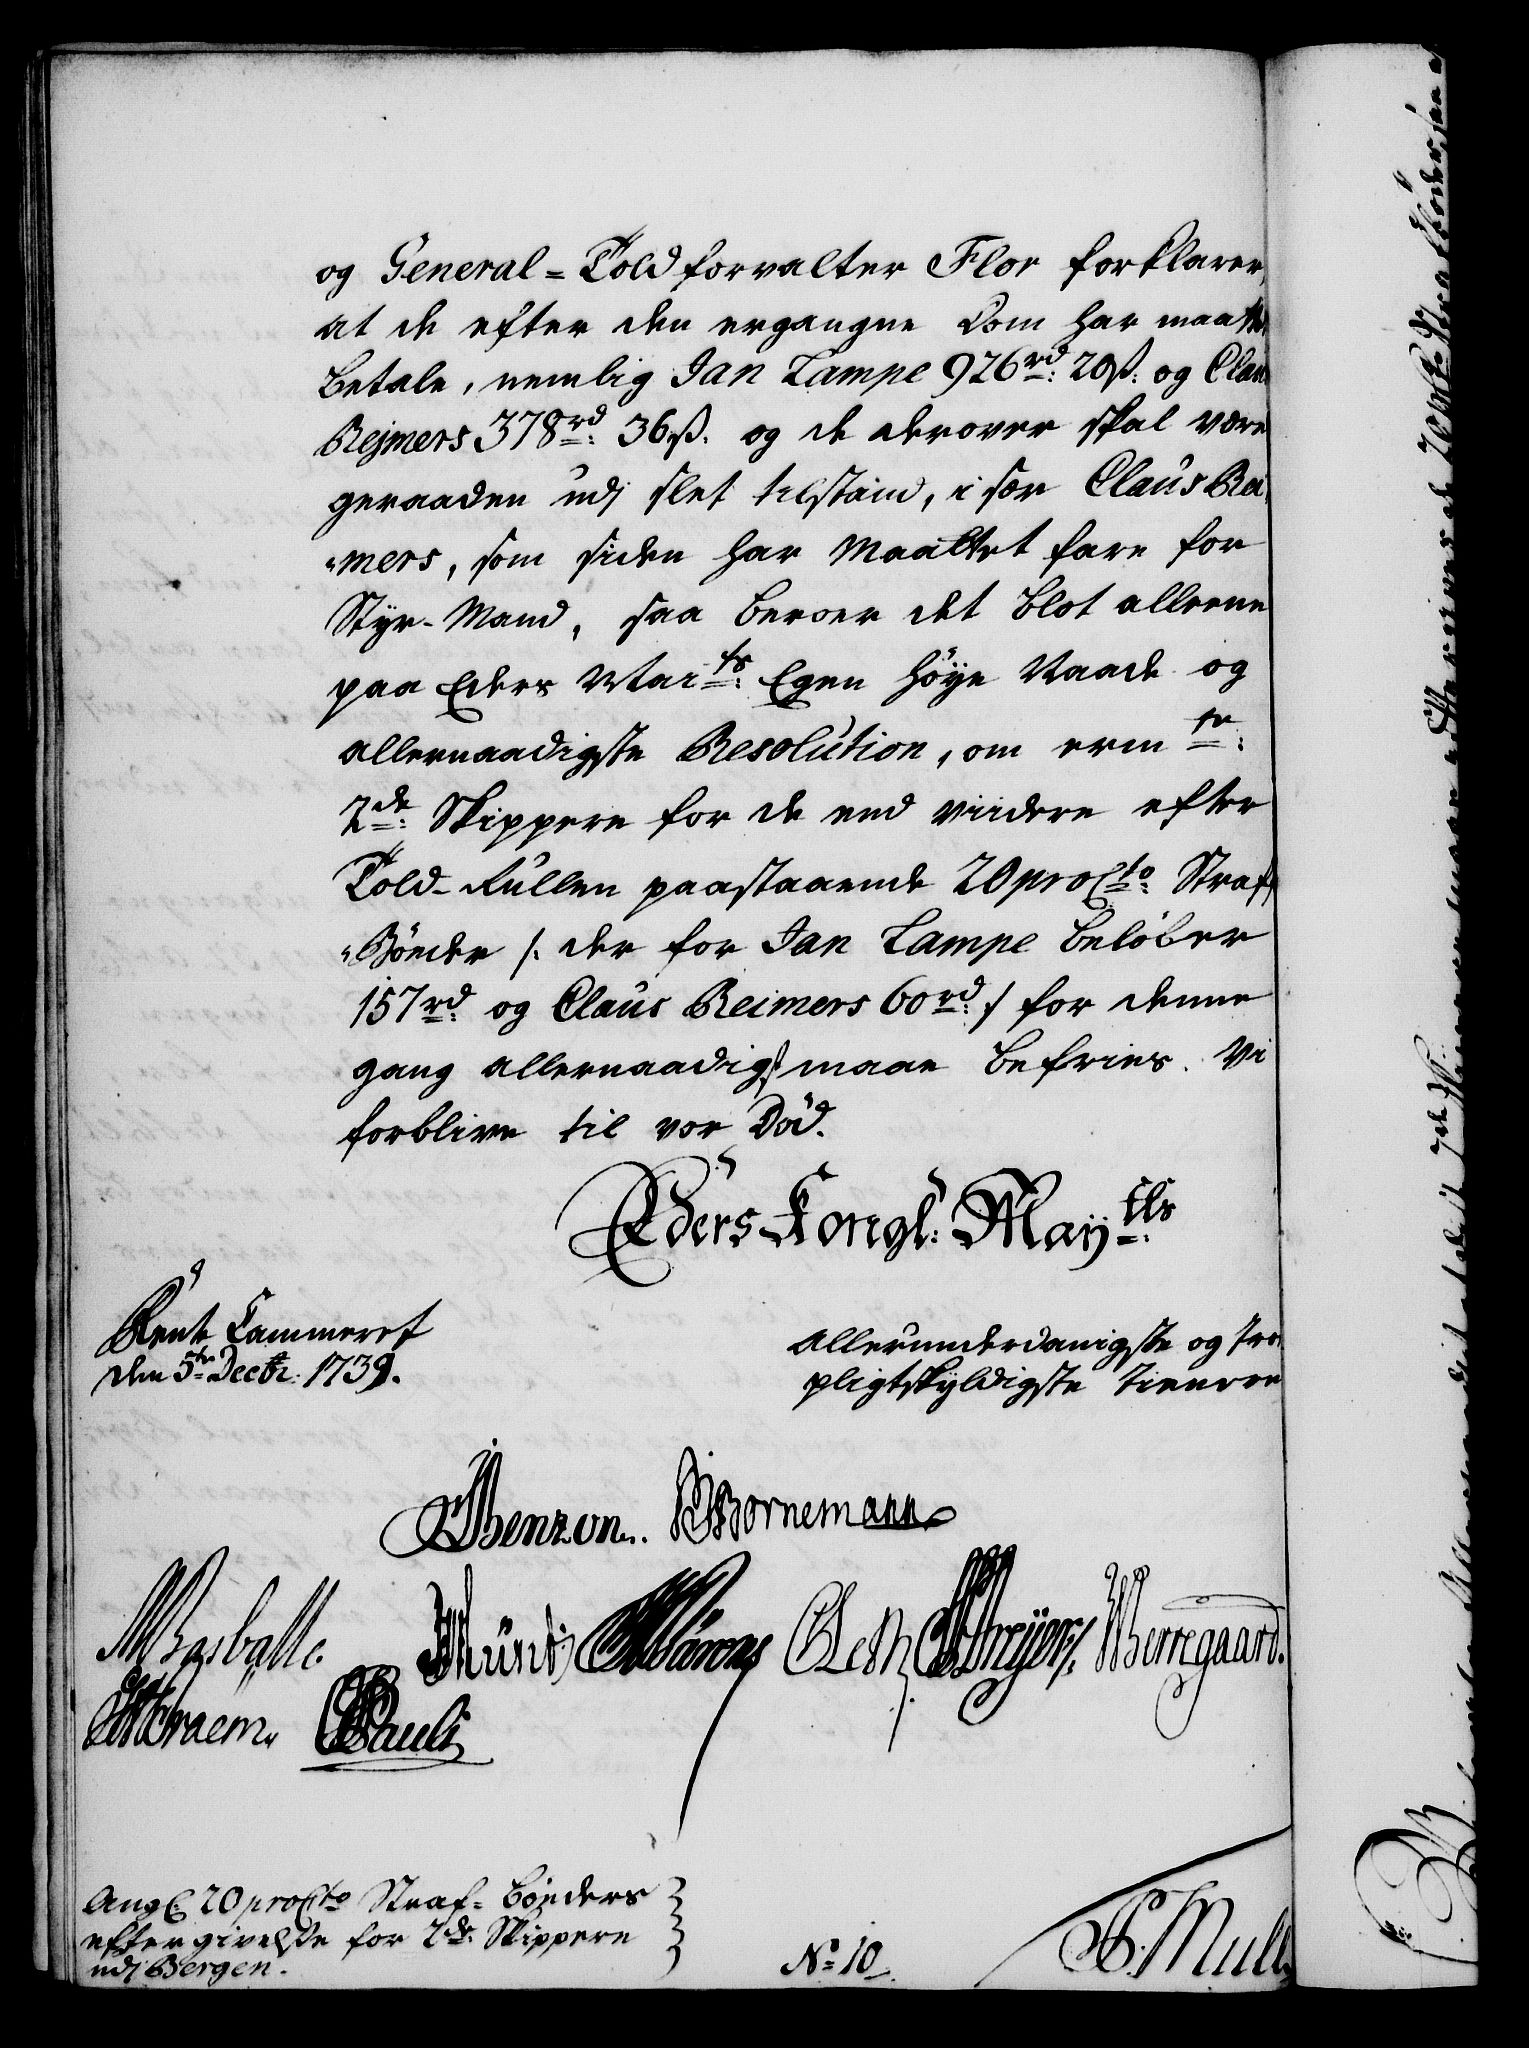 og General-Toldforvalter Flor forklarer,
at de efter den ergangne Dom har maattet
betale, nemlig Jan Lampe 926 rd: 20 ß: og Claus
Rejmers 378 rd: 36 ß. og de derover skal være
geraaden udj slet tilstand, i sær Claus Rei-
mers, som siden har Maattet fare for
Styr-Mand, saa beroer det blot alleene
paa Eders Mai ts: Egen höye Naade og
allernaadigste Resolution, om erm te:
2de: Skippere for de end viidere efter
Told-Rullen paastaaende 20 proCto: Straf-
Bönder /: der for Jan Lampe belöber
157 rd: og Claus Reimers 60 rd: / for denne
gang allernaadigst maae befries. Vi
forblive til vor Död.
Eders Kongl: May ts:
Rente Cammeret
den 5te Decbr: 1739.
allerunderdanigste og troe
pligtskyldigste tienere
Benzon. Bornemann
Basballe
Berregaard.
Braëm. Pauli
Ang: 20 proCto Straf-Bönders
eftergivelse for 2de: Skippere
udj Bergen.
No 10